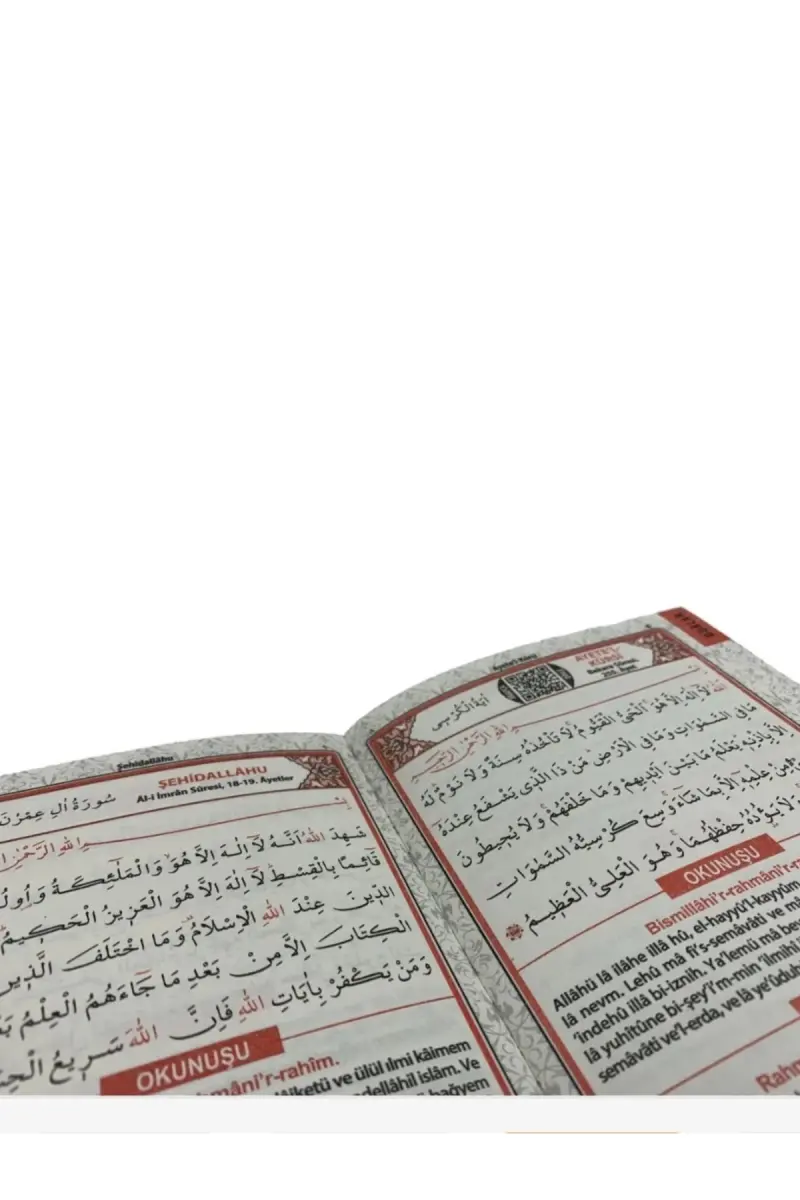 Şehidallahu
ŞEHİDALLÂHU
Âl-i İmrân Sûresi, 18-19. Âyetler
سُورَةُ اٰلِ عِمْرٰنَ
اللهِ الرَّحْمٰنِ
شَهِدَ اللهُ اَنَّهُ لَآ اِلٰهَ اِلَّا هُوَ وَالْمَلٰٓئِكَةُ وَاُولُ
قَآئِمًا بِالْقِسْطِ لَآ اِلٰهَ اِلَّا هُوَ الْعَزِيزُ الْحَكِيمُ
الدِّينَ عِنْدَ اللهِ الْاِسْلَامُ وَمَا اخْتَلَفَ الَّذِينَ
الْكِتَابَ اِلَّا مِنْ بَعْدِ مَا جَآءَهُمُ الْعِلْمُ
وَمَنْ يَكْفُرْ بِاٰيَاتِ اللهِ فَاِنَّ اللهَ سَرِيعُ
OKUNUŞU
mâni'r-rahîm.
âiketü ve ülül ılmi kâimem
dellâhil islâm. Ve
bağyem
Ayete'l-Kürsi
DUALAR
AYETE'L
KÜRSİ
Bakara Sûresi,
255. Âyet
اٰيَةُ الْكُرْسِى
اللهِ الرَّحْمٰنِ الرَّحِيمِ
اَللهُ لَآ اِلٰهَ اِلَّا هُوَ الْحَىُّ الْقَيُّومُ لَا تَأْخُذُهُ سِنَةٌ وَلَا نَوْمٌ لَهُ
مَا فِى السَّمٰوَاتِ وَمَا فِى الْاَرْضِ مَنْ ذَا الَّذِى يَشْفَعُ عِنْدَهُ
اِلَّا بِاِذْنِهِ يَعْلَمُ مَا بَيْنَ اَيْدِيهِمْ وَمَا خَلْفَهُمْ وَلَا يُحِيطُونَ
مِنْ عِلْمِهِ اِلَّا بِمَا شَآءَ وَسِعَ كُرْسِيُّهُ السَّمٰوَاتِ
وَلَا يَؤُدُهُ حِفْظُهُمَا وَهُوَ الْعَلِىُّ الْعَظِيمُ
OKUNUŞU
Bismillâhi'r-rahmâni'r-r
Allâhü lâ ilâhe illâ hû, el-hayyü'l-kayyûm
lâ nevm. Lehû mâ fi's-semâvâti ve mâ
'indehû illâ bi-iznih. Ya'lemü mâ be
lâ yuhîtûne bi-şey'i'm-min 'ilmihî
semâvâti ve'l-erda, ve lâ ye'ûduh
Rahm